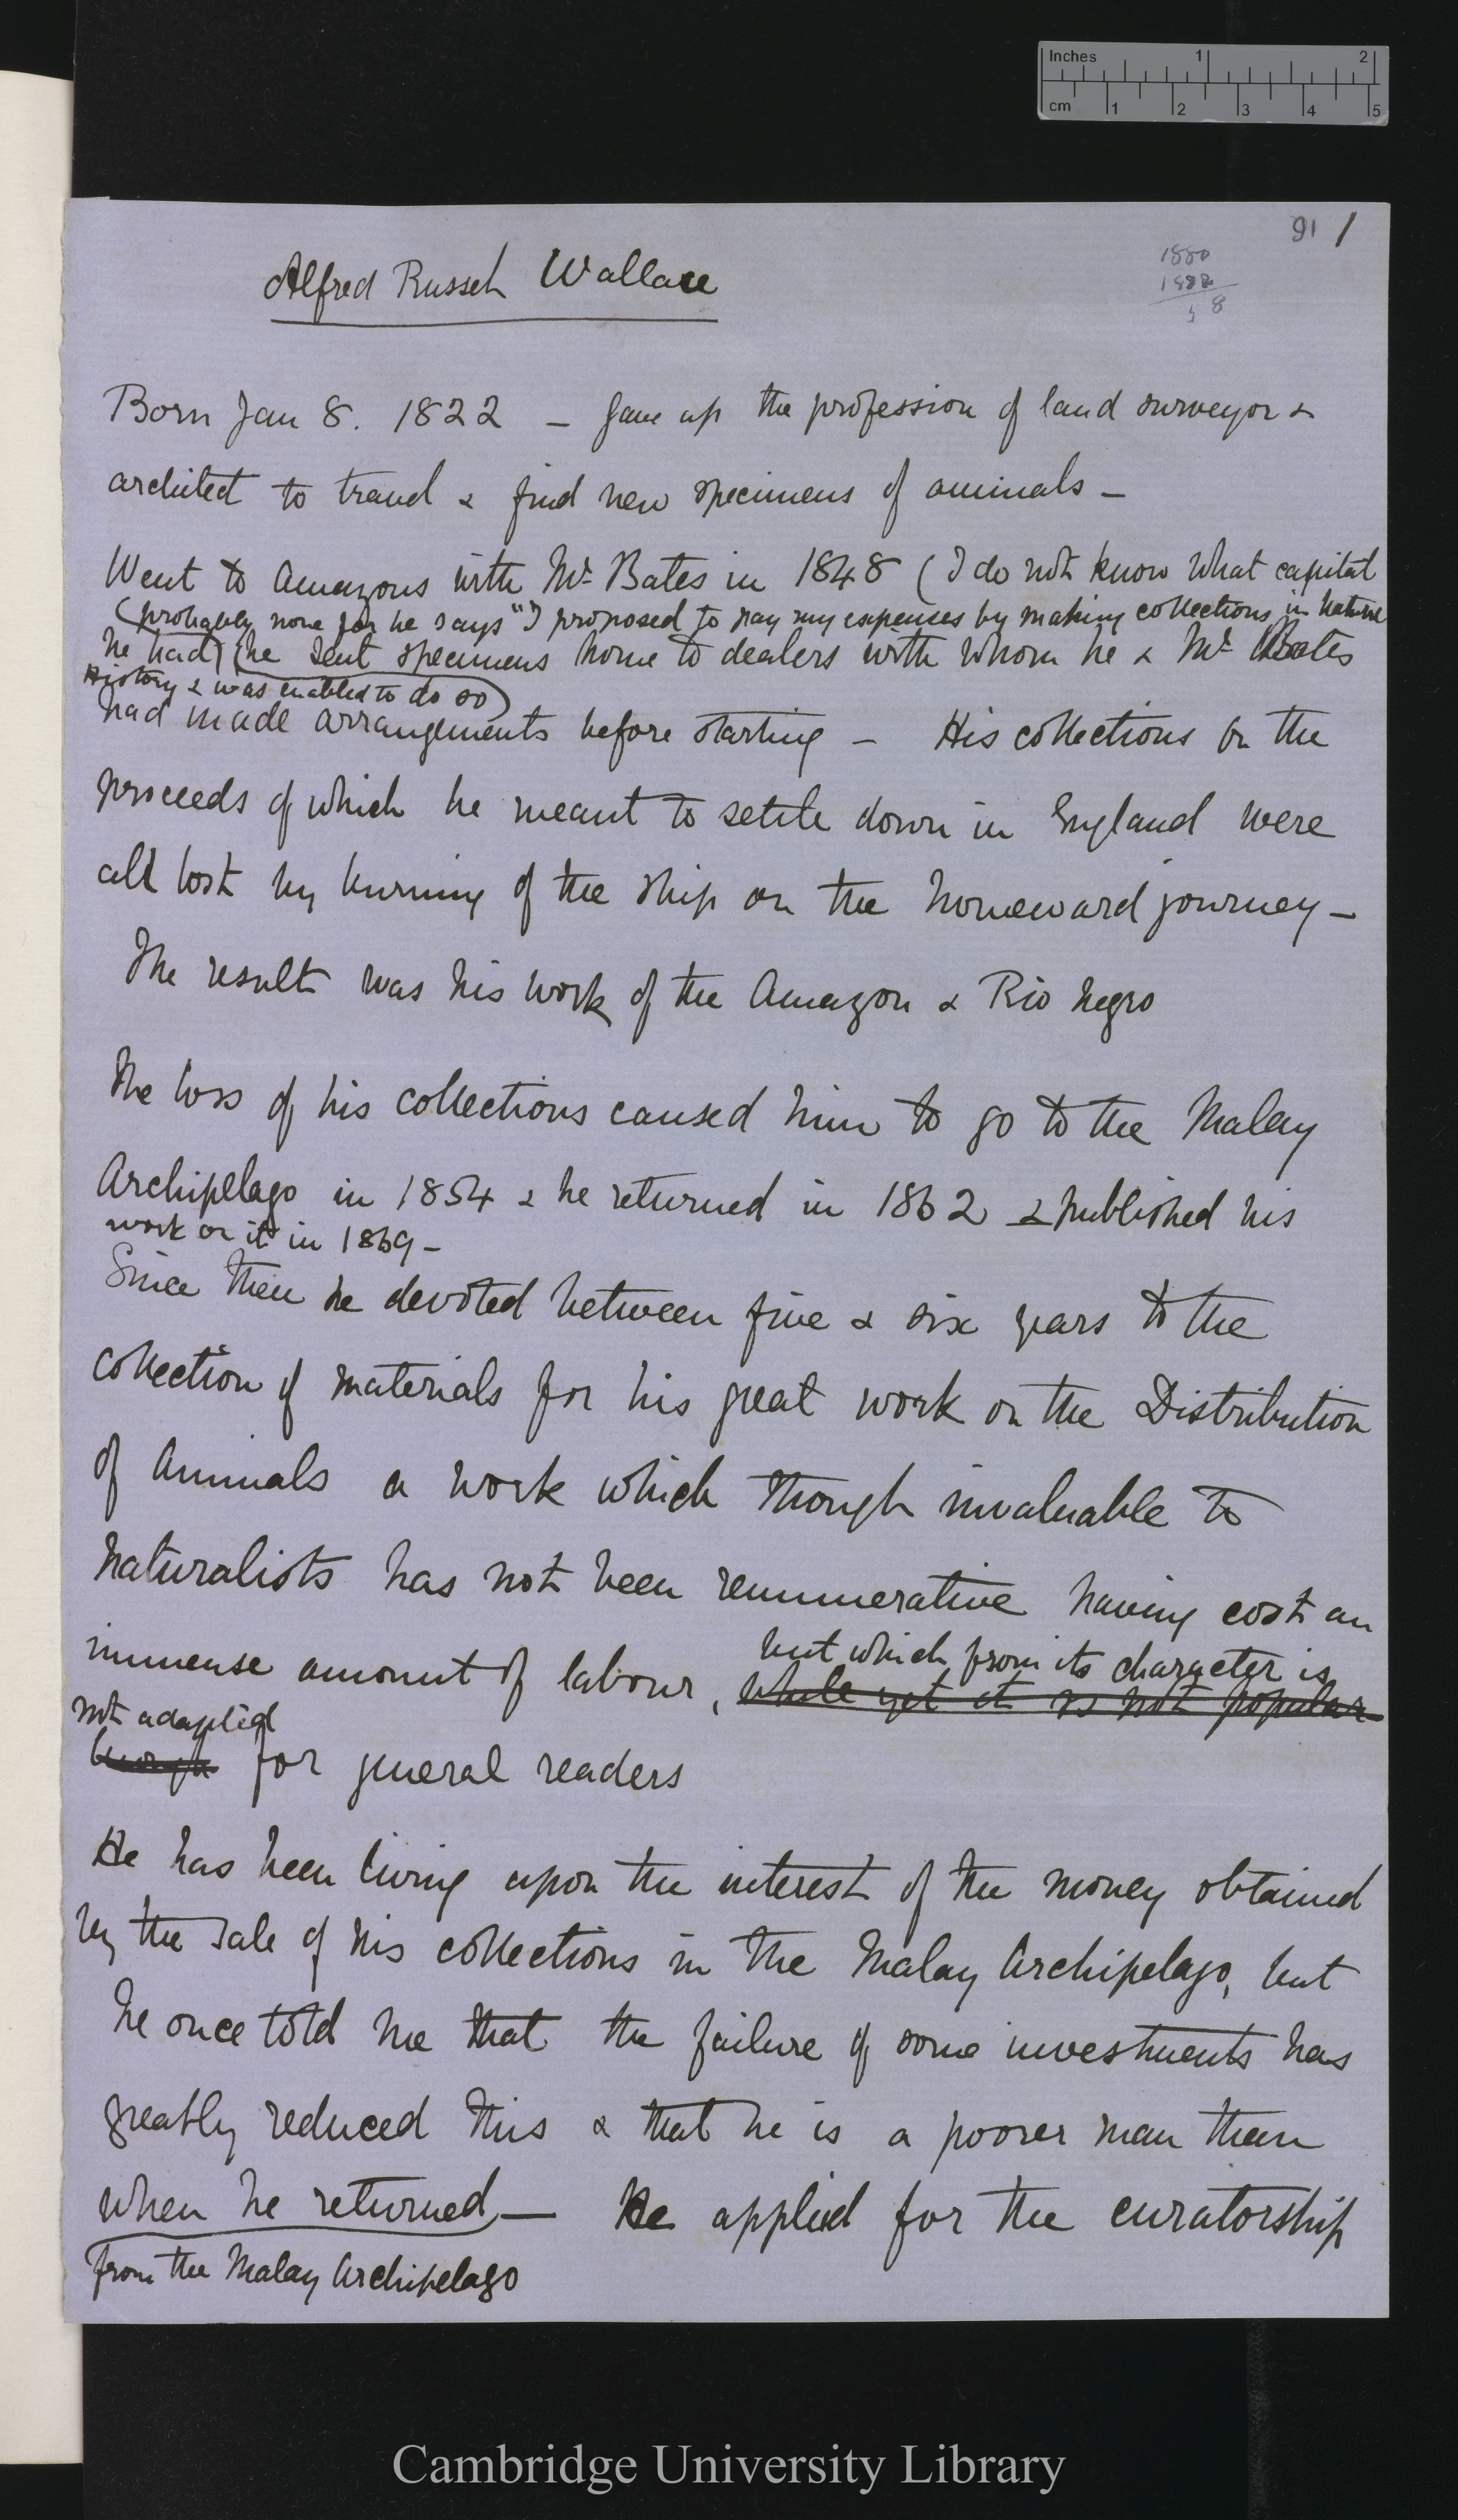 Inches 1 2
cm 1 2 3 4 5
91 1
1880
1822
58
Alfred Russel Wallace
Born Jan 8. 1822 – gave up the profession of land surveyor &
architect to travel & find new specimens of animals –
Went to Amazons with Mr Bates in 1848 (I do not know what capital
(probably none for he says "I proposed to pay my expenses by making collections in Natural
he had) (he sent specimens home to dealers with whom he & Mr Bates
History & was enabled to do so)
had made arrangements before starting – His collections on the
proceeds of which he meant to settle down in England were
all lost by burning of the ship on the homeward journey –
The result was his work of the Amazon & Rio Negro
The loss of his collections caused him to go to the Malay
Archipelago in 1854 & he returned in 1862 & published his
work on it in 1869 –
Since then he devoted between five & six years to the
collection of materials for his great work on the Distribution
of Animals a work which though invaluable to
naturalists has not been remunerative having cost an
immense amount of labour, but which from its character is
while yet it is not popular
not adapted
enough for general readers
He has been living upon the interest of the money obtained
by the sale of his collections in the Malay Archipelago, but
he once told me that the failure of some investments has
greatly reduced this & that he is a poorer man than
when he returned – He applied for the curatorship
from the Malay Archipelago
Cambridge University Library